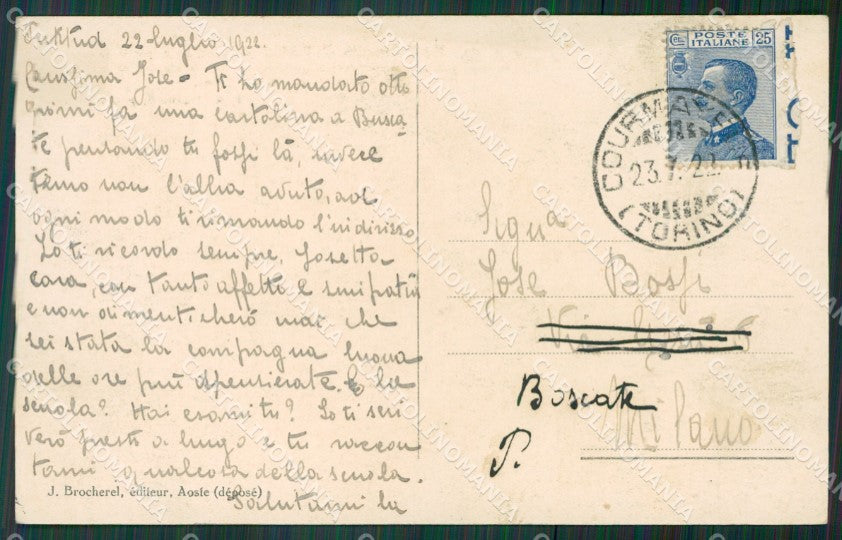 22 luglio 1922.
Carissima Jose - Ti ho mandato otto
giorni fa una cartolina a Busca
te pensando tu fossi là, invece
temo non l'abbia avuta, ad
ogni modo ti rimando l'indirizzo
Io ti ricordo sempre, Josetta
cara, con tanto affetto e simpatia
e non dimenticherò mai che
sei stata la compagna buona
delle ore più spensierate. E la
scuola? Hai esami tu? Io ti scri
verò presto a lungo e tu raccon
tami qualcosa della scuola.
Salutami la
J. Brocherel, éditeur, Aoste (déposé)
POSTE
ITALIANE
Cent. 25
COURMAYEUR
23.7.22
(TORINO)
Signa
Jose Bossi
Via
Boscate
P.
Milano
CARTOLINOMANIA